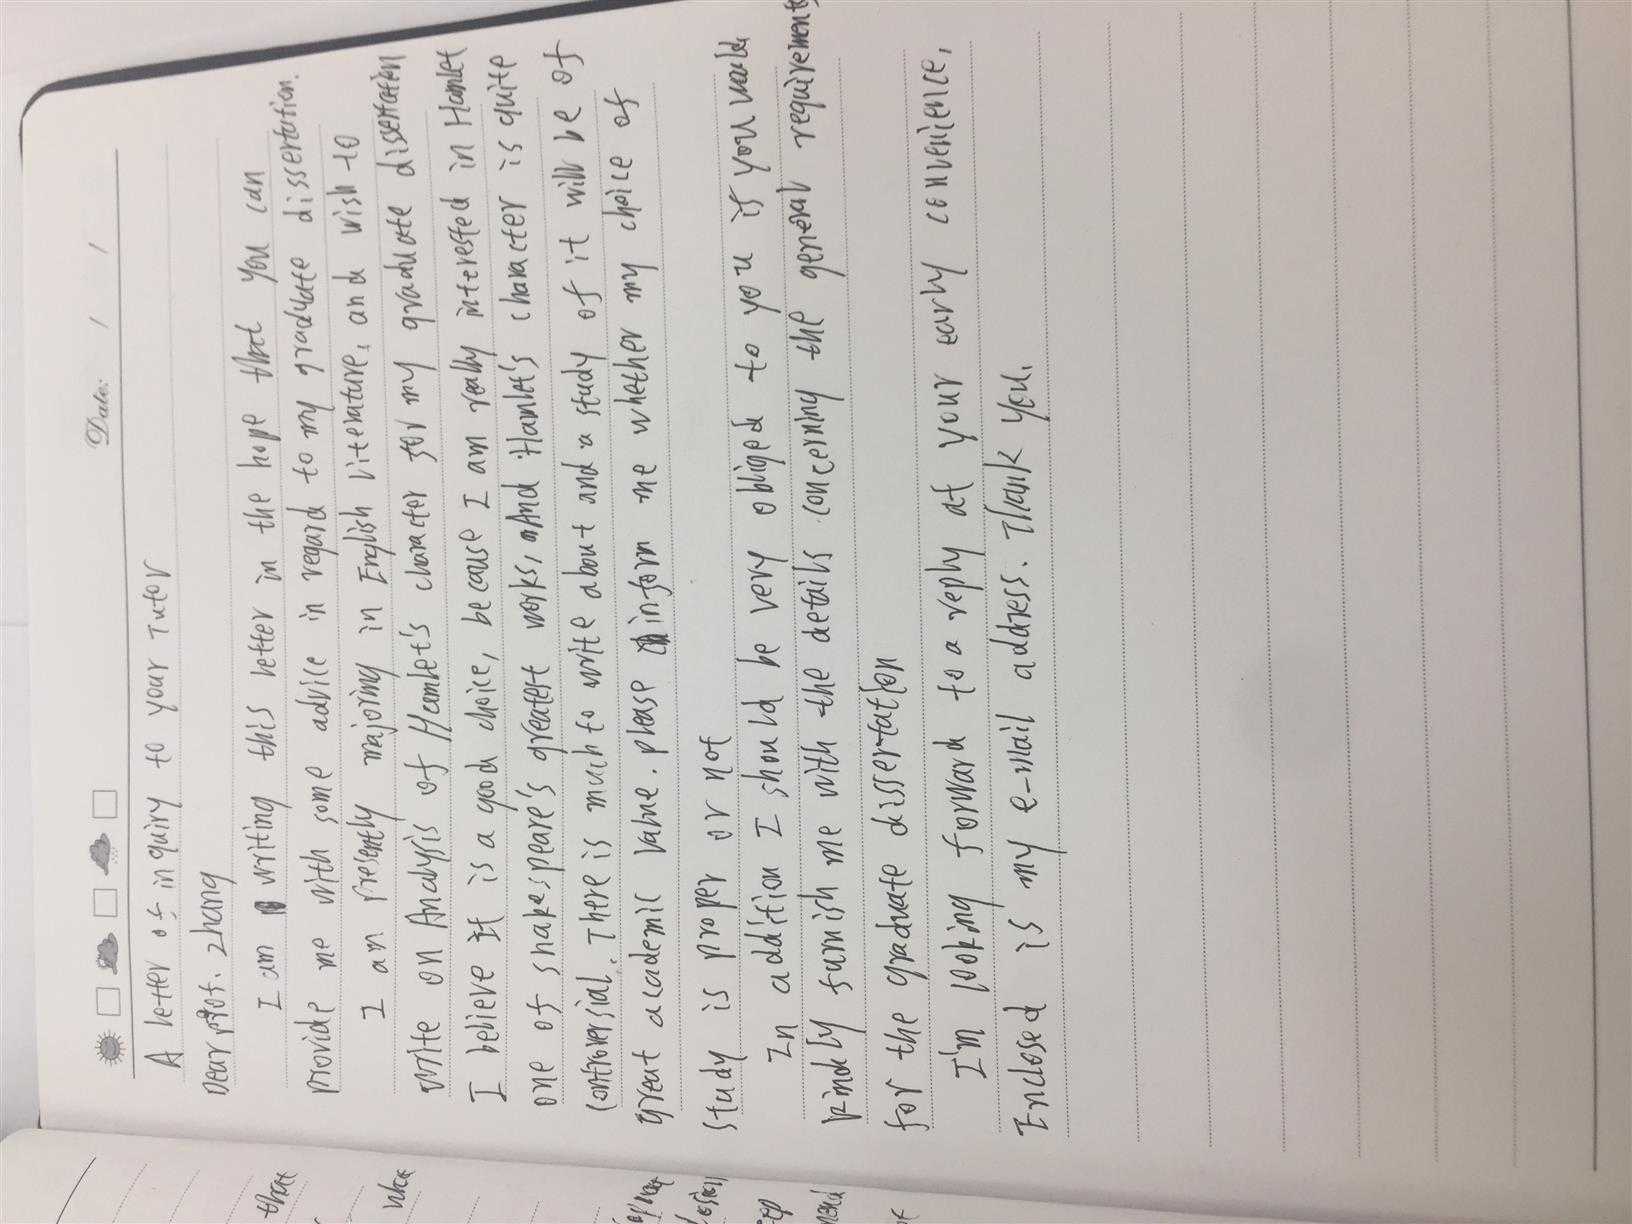 Date: / /
A letter of inquiry to your Tutor
Dear Prof. Zhang
I am writing this letter in the hope that you can
provide me with some advice in regard to my graduate dissertation.
I am presently majoring in English Literature, and wish to
write on Analysis of Hamlet's character for my graduate dissertation
I believe It is a good choice, because I am really interested in Hamlet
one of shakespeare's greatest works, And Hamlet's character is quite
controversial. There is much to write about and a study of it will be of
great academic value. please inform me whether my choice of
study is proper or not
In addition I should be very obliged to you if you would
kindly furnish me with the details concerning the general requirements
for the graduate dissertation
I'm looking forward to a reply at your early convenience,
Enclosed is my e-mail address. Thank you.
that